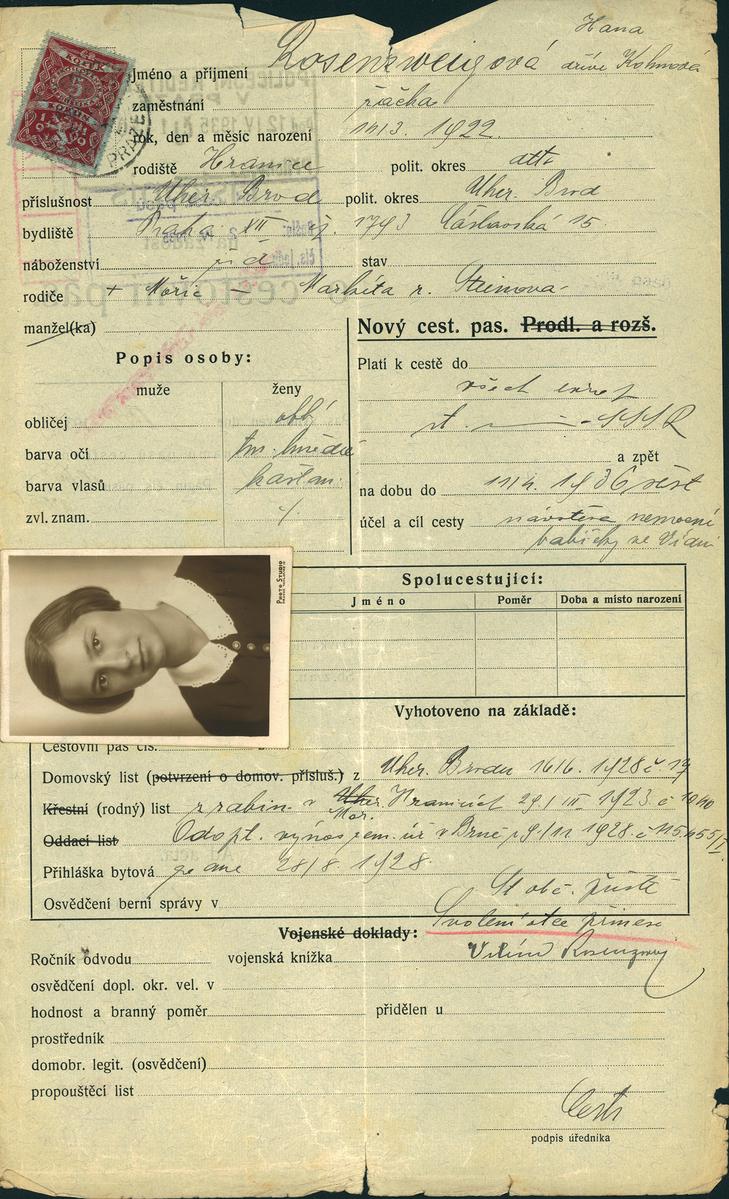 Hana
Jméno a příjmení Rosenzweigová dříve Kohnová
zaměstnání žačka
rok, den a měsíc narození 14/3. 1922
rodiště Hranice polit. okres
příslušnost Uher. Brod polit. okres Uher. Brod
bydliště Praha XII čj. 1793 Čáslavská 15
náboženství žid. stav
rodiče + Mořic – Markéta r. Steinová
manžel(ka)
Nový cest. pas. Prodl. a rozš.
Popis osoby:
muže ženy
obličej obl.
barva očí tm. hnědé
barva vlasů kaštan.
zvl. znam.
Platí k cestě do
všech evrop.
st. SSSR
a zpět
na dobu do 1936
účel a cíl cesty návštěva nemocné
babičky ve Vídni
PHOTO STUDIO
Spolucestující:
Jméno Poměr Doba a místo narození
Vyhotoveno na základě:
Cestovní pas čís.
Domovský list (potvrzení o domov. přísluš.) z Uher. Brodu 16/6. 1928 č 17
Křestní (rodný) list z rabin. v Uher. Hranicích 29/III. 1923. č
Mor.
Oddací list Adopt. výnos zem. úř v Brně 1928. č
Přihláška bytová ze dne 28/8. 1928.
Osvědčení berní správy v St. obč. příště
Svolení otce přinese
Vojenské doklady:
Vilém
Ročník odvodu vojenská knížka
osvědčení dopl. okr. vel. v
hodnost a branný poměr přidělen u
prostředník
domobr. legit. (osvědčení)
propouštěcí list
podpis úředníka